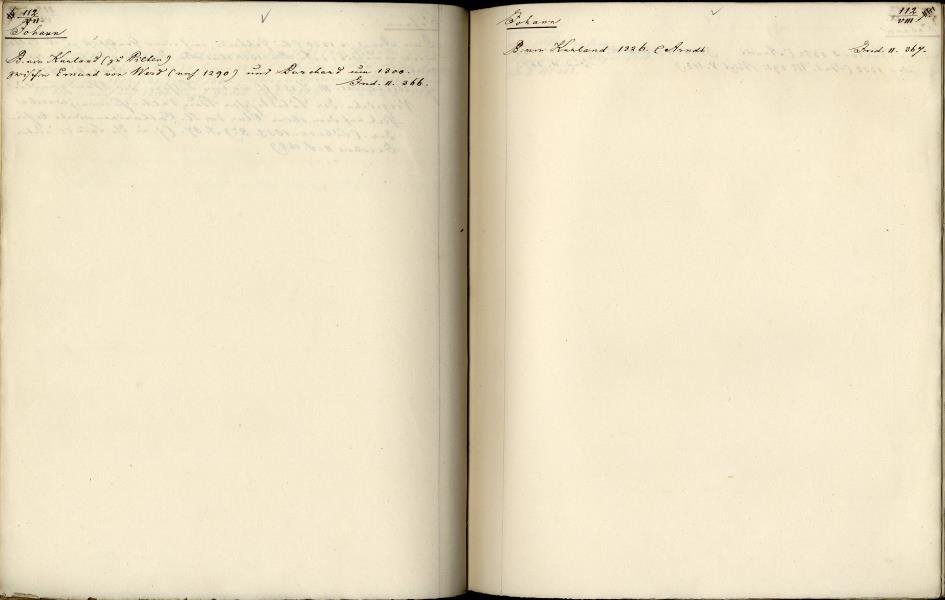 112
VII
Johann
B. von Kurland (zu Pilten)
zwischen Emund von Werd (nach 1290) und Burchard um 1300.
Ind. II. 366.
112
VIII
Johann
B. von Kurland 1326. (Arndt.
Ind. II. 367.